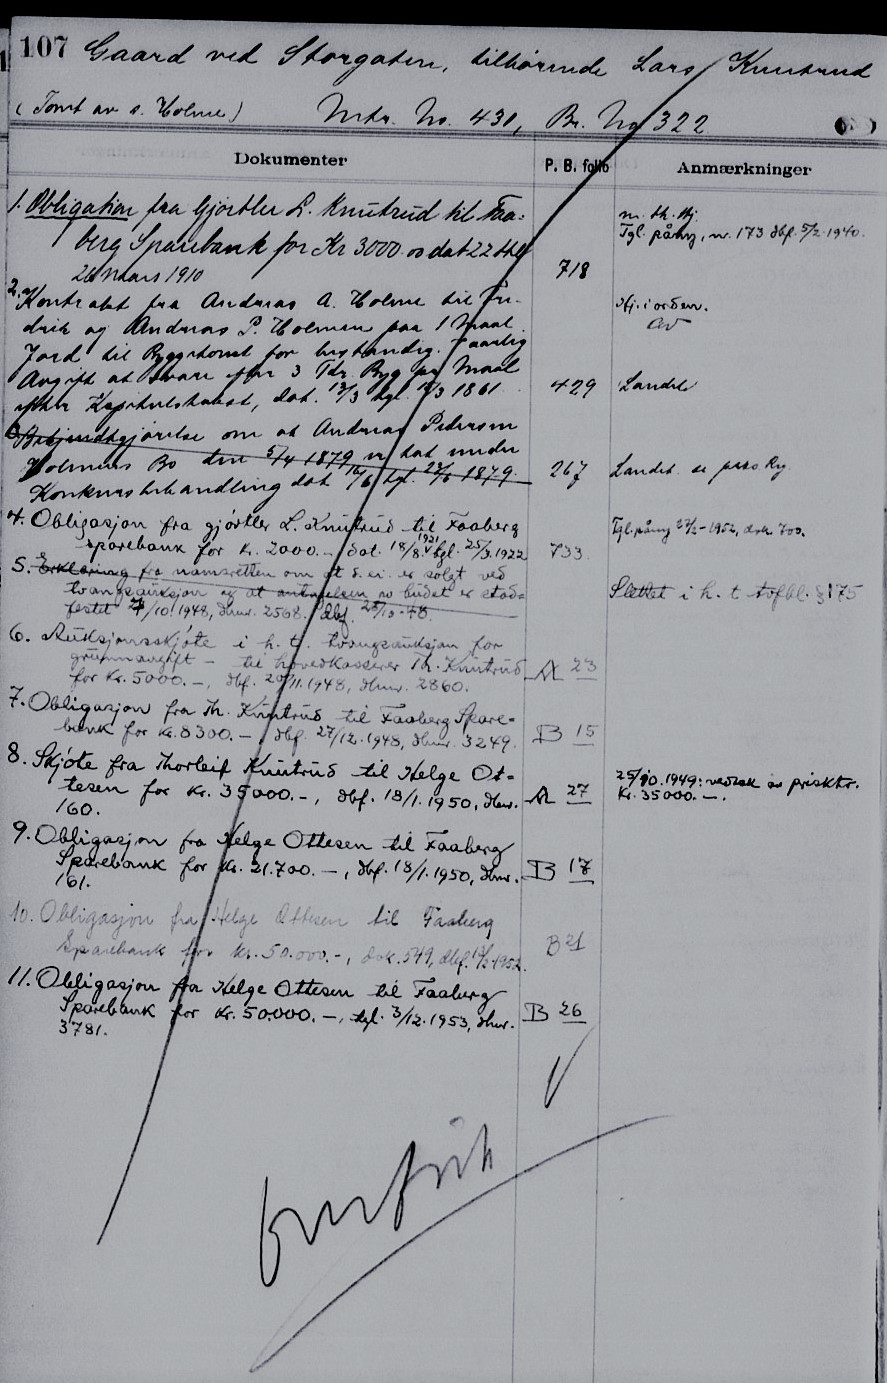 107 Gaard ved Storgaten, tilhørende Lars Knutrud
(Tomt av s. Holme) Mtr. No. 430, Br. No 322
Dokumenter P. B. folio Anmærkninger
1. Obligation fra Gjørtler L. Knutrud til Faa-
berg Sparebank for Kr 3000.00 dat 22 thl
26 mars 1910 718
Tgl. påny, nr. 173 dbf. 5/2 1940.
2. Kontrakt fra Andreas A. Holme til
og Andreas P. Holmen paa 1 Maal
Jord til Byggetomt for bestandig. Aarlig
Avgift at svare efter 3 Tdr. Byg pr Maal
efter Kapitelstakst, dat. 12/3 tgl. 1861 429
Hj. i orden.
av
Landet
3. Bekjendtgjørelse om at Andreas Petersen
Holmens Bo den 5/4 1879 er tat under
Konkursbehandling dat 16/6 tgl. 1879. 267 Landet.
4. Obligasjon fra gjørtler L. Knutrud til Faaberg
sparebank for kr. 2000.- dat. 18/8. 1921 tgl. 25/3.1922 733
Tgl. påny 1952, dok 700.
5. Erklæring fra namsretten om at d. ei. er solgt ved
tvangsauksjon og at antagelsen av budet er stad-
festet /10.1948, dnr. 2568. dbf. 25/10-48. Slettet i h. t. tvfbl. § 175
6. Auksjonsskjøte i h. t. tvangsauksjon for
grunnavgift – til hovedkasserer Th. Knutrud
for kr. 5000.-, dbf. 20/11.1948, dnr. 2860. A 23
7. Obligasjon fra Th. Knutrud til Faaberg Spare-
bank for kr. 8300.-, dbf. 27/12.1948, dnr. 3249. B 15
8. Skjøte fra Thorleif Knutrud til Helge Ot-
tesen for kr. 35000.-, dbf. 18/1.1950, dnr.
160. A 27
25/10.1949: vedtak av prisktr.
Kr. 35000.-.
9. Obligasjon fra Helge Ottesen til Faaberg
Sparebank for kr. 21.700.-, dbf. 18/1.1950, dnr.
161. B 17
10. Obligasjon fra Helge Ottesen til Faaberg
Sparebank for kr. 50.000.-, dok. 549, dbf. 1952. B 21
11. Obligasjon fra Helge Ottesen til Faaberg
Sparebank for kr. 50.000.-, tgl. 3/12.1953, dnr.
3781. B 26